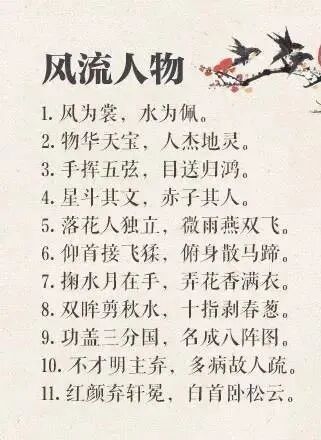 风流人物
1. 风为裳，水为佩。
2. 物华天宝，人杰地灵。
3. 手挥五弦，目送归鸿。
4. 星斗其文，赤子其人。
5. 落花人独立，微雨燕双飞。
6. 仰首接飞猱，俯身散马蹄。
7. 掬水月在手，弄花香满衣。
8. 双眸剪秋水，十指剥春葱。
9. 功盖三分国，名成八阵图。
10. 不才明主弃，多病故人疏。
11. 红颜弃轩冕，白首卧松云。